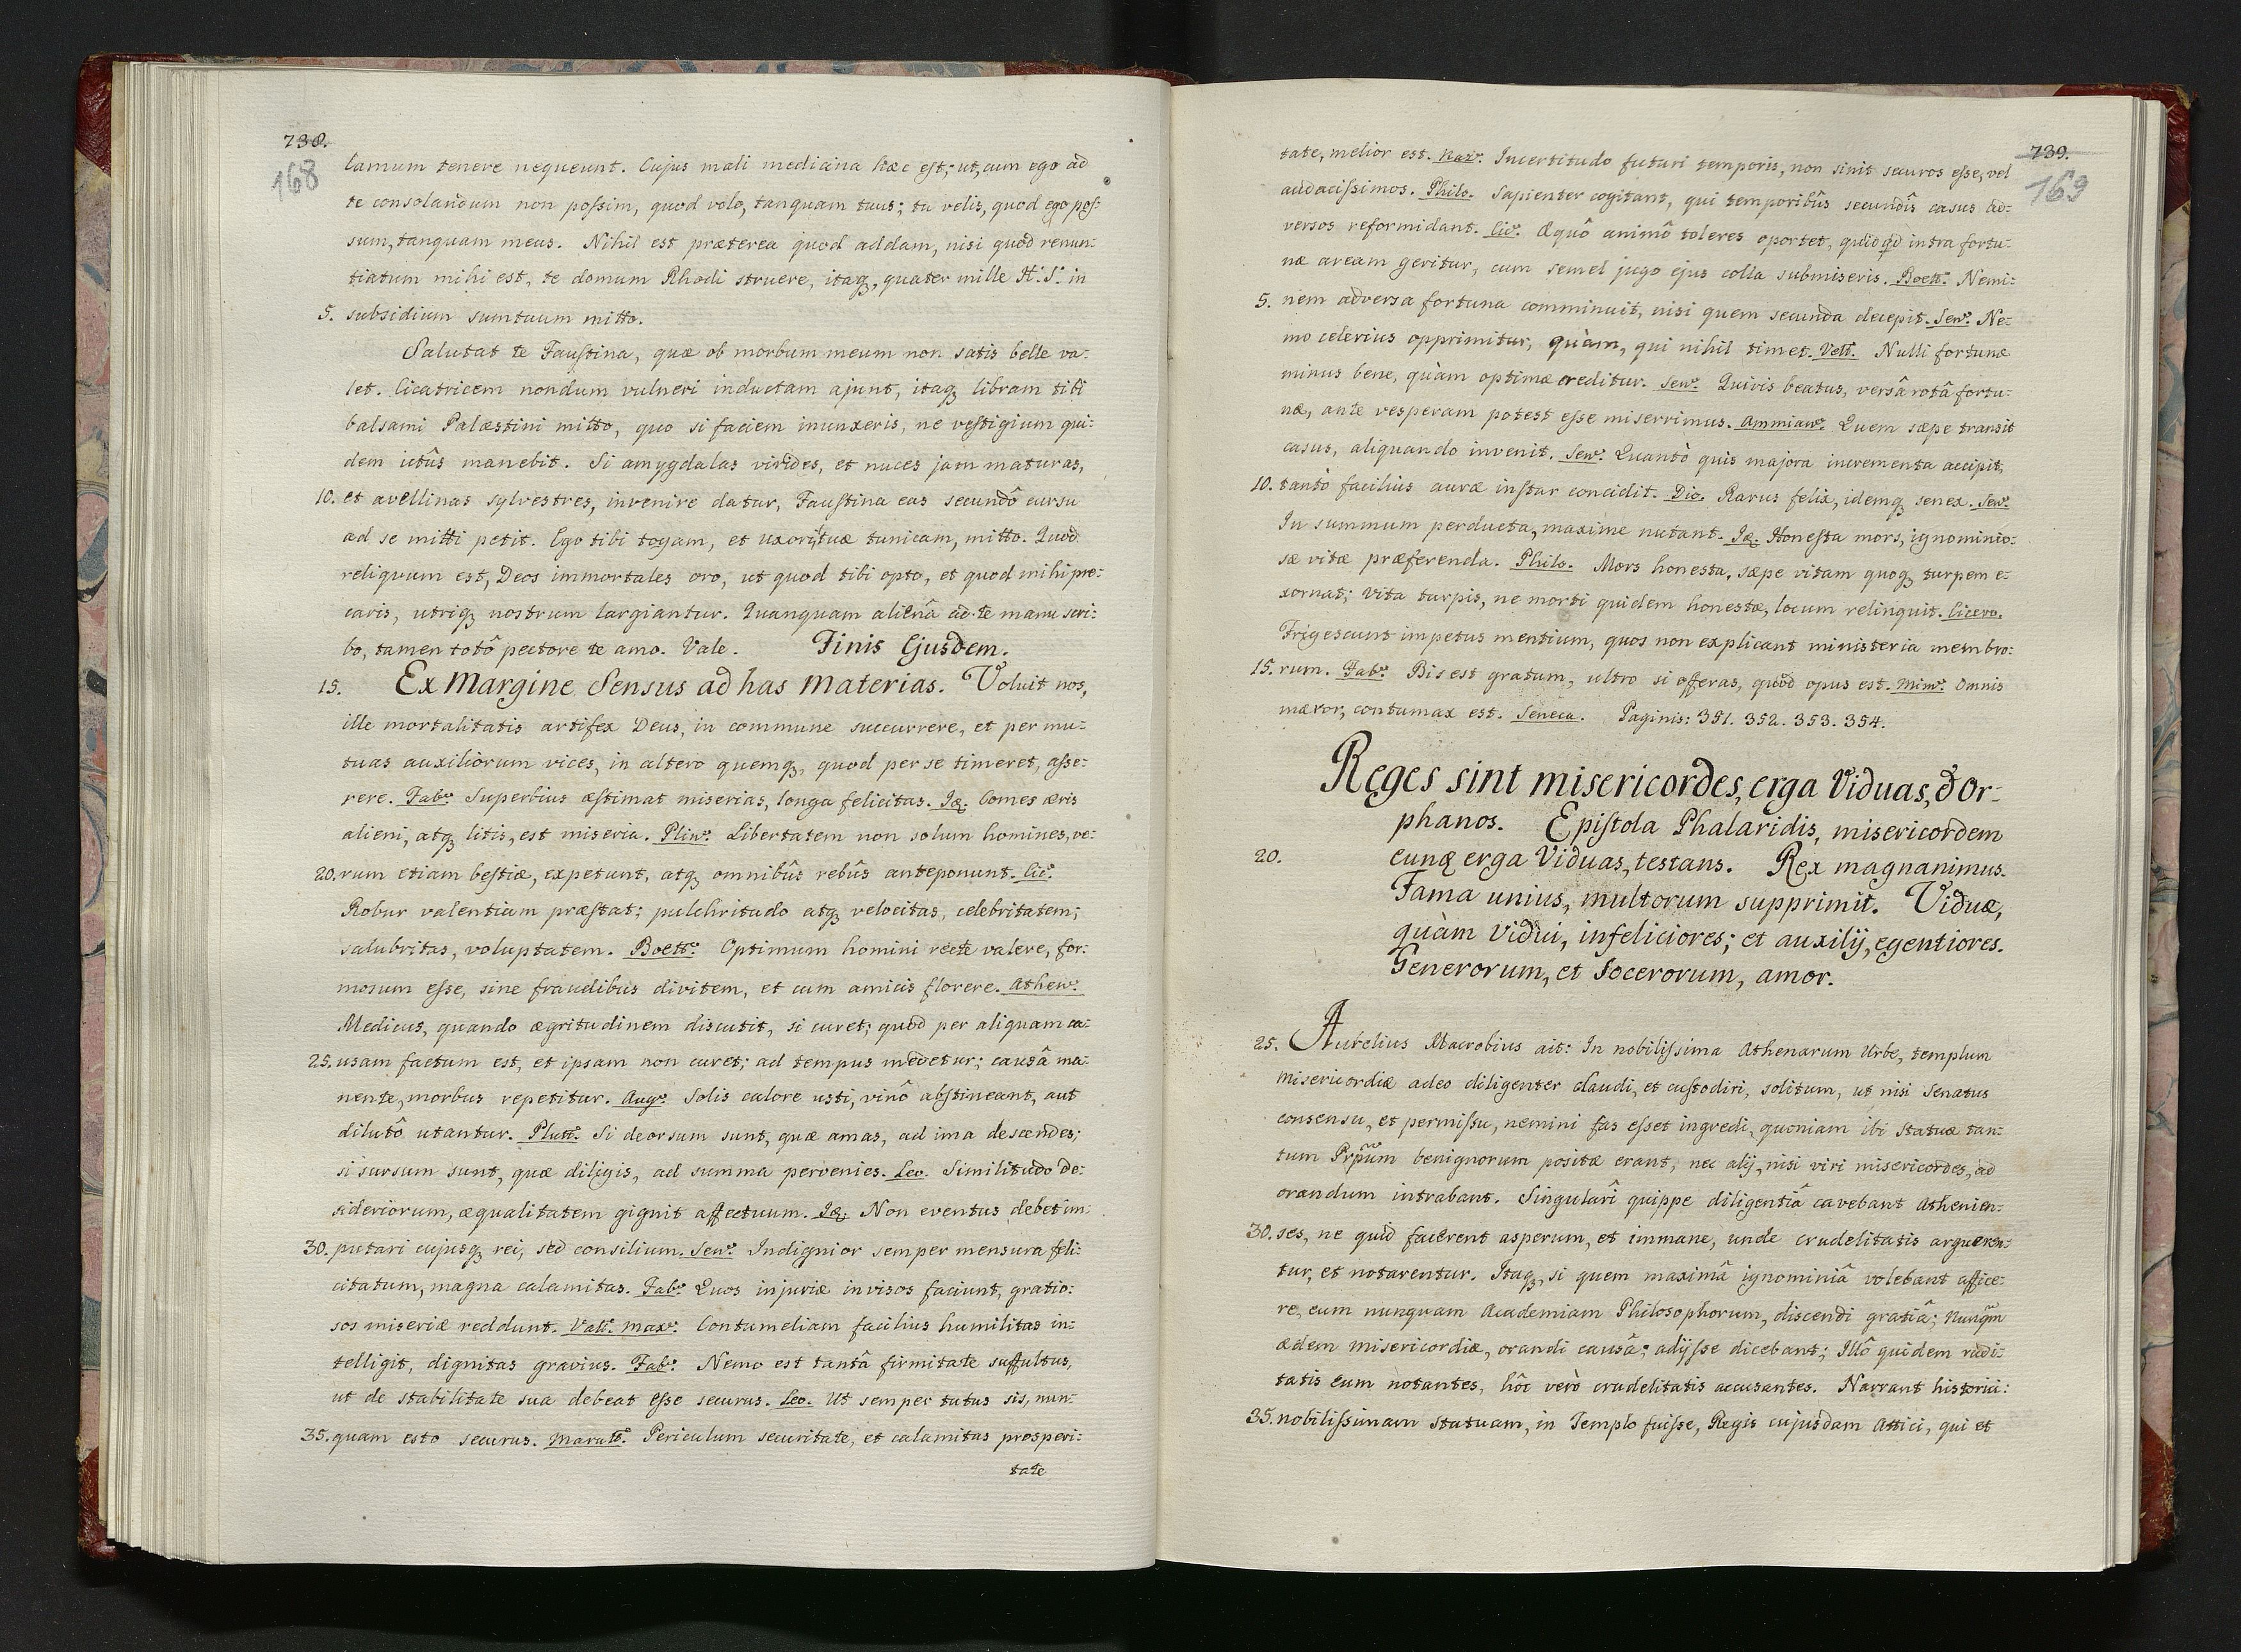 738.
168
lamum tenere nequeunt. Cujus mali medicina hæc est; ut, cum ego ad
te consolandum non possim, quod volo, tanquam tuus; tu velis, quod ego pos:
sum, tanquam meus. Nihil est præterea quod addam, nisi quod renun:
tiatum mihi est, te domum Rhodi struere, itaq, quater mille H.S. in
5. subsidium sumtuum mitto.
Salutat te Faustina, quæ ob morbum meum non satis belle va:
let. Cicatricem nondum vulneri inductam ajunt, itaq libram tibi
balsami Palæstini mitto, quo si faciem inunxeris, ne vestigium qui:
dem ictûs manebit. Si amygdalas virides, et nuces jam maturas,
10. et avellinas sylvestres, invenire datur, Faustina eas secundô cursu
ad se mitti petit. Ego tibi togam, et uxori tuæ tunicam, mitto. Quod
reliquum est, Deos immortales oro, ut quod tibi opto, et quod mihi pre:
caris, utriq nostrum largiantur. Quanquam alienâ ad te manu scri:
bo, tamen totô pectore te amo. Vale. Finis Ejusdem.
15. Ex Margine Sensus ad has materias. Voluit nos,
ille mortalitatis artifex Deus, in commune succurrere, et per mu:
tuas auxiliorum vices, in altero quemq, quod per se timeret, asse:
rere. Fab: Superbius æstimat miserias, longa felicitas. Iq. Comes æris
alieni, atq litis, est miseria. Plin: Libertatem non solum homines, ve:
20. rum etiam bestiæ, expetunt, atq omnibûs rebûs anteponunt. Cic:
Robur valentium præstat; pulchritudo atq velocitas, celebritatem;
salubritas, voluptatem. Boett: Optimum homini recte valere, for:
mosum esse, sine fraudibus divitem, et cum amicis florere. Athen:
Medicus, quando ægritudinem discutit, si curet; quod per aliquam ca:
25. usam factum est, et ipsam non curet; ad tempus medetur; causâ ma:
nente, morbus repetitur. Aug: Solis calore usti, vinô abstineant, aut
dilutô utantur. Plutt: Si deorsum sunt, quæ amas, ad ima descendes;
si sursum sunt, quæ diligis, ad summa pervenies. Leo. Similitudo de:
sideriorum, æqualitatem gignit affectuum. Iq. Non eventus debet im:
30. putari cujusq rei, sed consilium. Sen: Indignior semper mensura feli:
citatum, magna calamitas. Fab: Quos injuriæ invisos faciunt, gratio:
sos miseriæ reddunt. Vall: Max: Contumeliam facilius humilitas in:
telligit, dignitas gravius. Fab: Nemo est tantâ firmitate suffultus,
ut de stabilitate sua debeat esse securus. Leo. Ut semper tutus sis, nun:
35. quam esto securus. Marull: Periculum securitate, et calamitas prosperi:
tate
739.
169
tate, melior est. Naz: Incertitudo futuri temporis, non sinit securos esse, vel
audacissimos. Philo. Sapienter cogitant, qui temporibûs secundîs casus ad:
versos reformidant. Cic: Æquô animô toleres oportet, quidqd intra fortu:
næ aream geritur, cum semel jugo ejus colla submiseris. Boett: Nemi:
5. nem adversa fortuna comminuit, nisi quem secunda decepit. Sen: Ne:
mo celerius opprimitur, quàm, qui nihil timet. Vell. Nulli fortunæ
minus bene, quàm optimæ creditur. Sen: Quivis beatus, versâ rotâ fortu:
næ, ante vesperam potest esse miserrimus. Ammian: Quem sæpe transit
casus, aliquando invenit. Sen: Quantò quis majora incrementa accipit,
10. tantò facilius auræ instar concidit. Dio. Rarus felix, idemq senex. Sen:
In summum perducta, maxime nutant. Iq. Honesta mors, ignominio:
sæ vitæ præferenda. Philo. Mors honesta, sæpe vitam quoq turpem e:
xornat; vita turpis, ne morti quidem honestæ, locum relinquit. Cicero.
Frigescunt impetus mentium, quos non explicant ministeria membro:
15. rum. Fab: Bis est gratum, ultro si offeras, quod opus est. Mim: Omnis
mæror, contumax est. Seneca. Paginis: 351. 352. 353. 354.
Reges sint misericordes, erga Viduas, & Or:
phanos. Epistola Phalaridis, misericordem
20. eunq erga Viduas, testans. Rex magnanimus.
Fama unius, multorum supprimit. Viduæ,
quàm Vidui, infeliciores; et auxilij, egentiores.
Generorum, et Socerorum, amor.
25. Aurelius Macrobius ait: In nobilissima Athenarum Urbe, templum
misericordiæ adeo diligenter claudi, et custodiri, solitum, ut nisi Senatus
consensu, et permissu, nemini fas esset ingredi, quoniam ibi Statuæ tan:
tum Prpum benignorum positæ erant, nec alij, nisi viri misericordes, ad
orandum intrabant. Singulari quippe diligentiâ cavebant Athenien:
30. ses, ne quid facerent asperum, et immane, unde crudelitatis argueren:
tur, et notarentur. Itaq, si quem maximâ ignominiâ volebant affice:
re, eum nunquam Academiam Philosophorum, discendi gratiâ; nunqm
ædem misericordiæ, orandi causâ; adijsse dicebant; Illô quidem rudi:
tatis eum notantes, hôc verò crudelitatis accusantes. Narrant historici:
35. nobilissimam statuam, in Templo fuisse, Regis cujusdam Attici, qui et